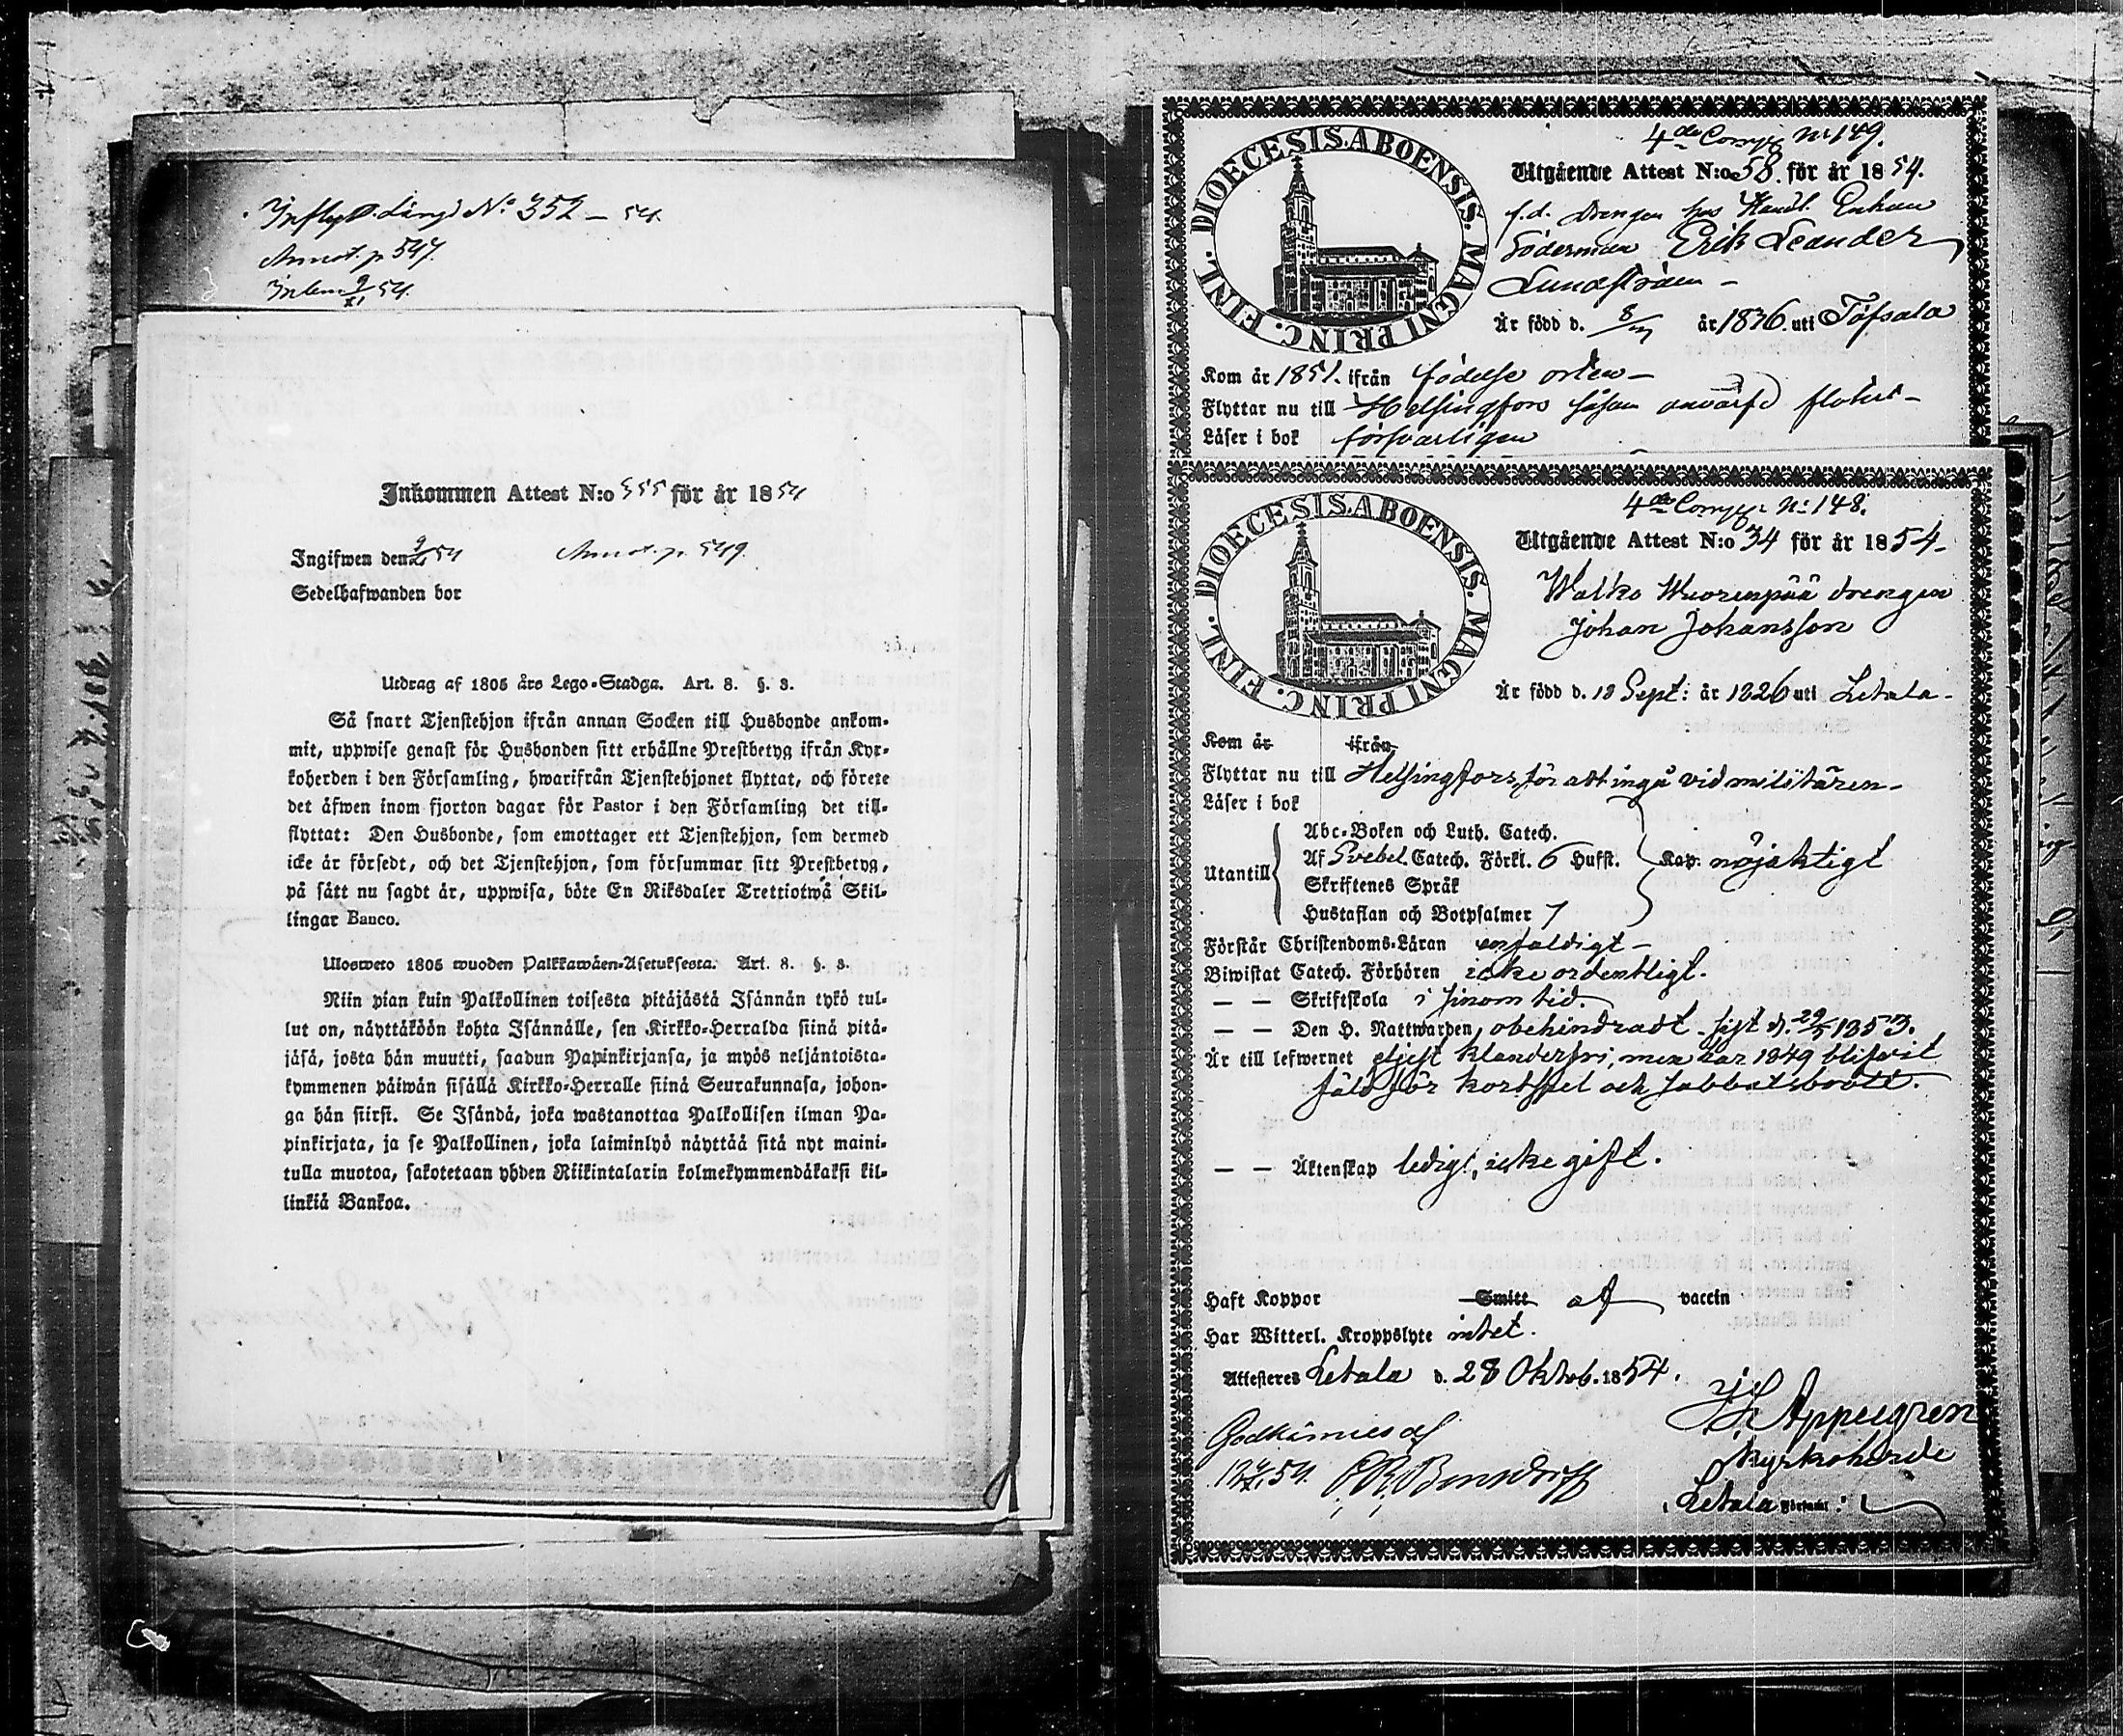 Inflyttn. Längd No 352 – 54.
Annot. p 547.
Inlem 9/XI 54.
Inkommen Attest N:o 355 för år 1854
Ingifwen den 9/XI 54 Annot. p. 549.
Sedelhafwanden bor
Utdrag af 1805 års Lego-Stadga. Art. 8. §. 3.
Så snart Tjenstehjon ifrån annan Socken till Husbonde ankom-
mit, uppwise genast för Husbonden sitt erhållne Prestbetyg ifrån Kyr-
koherden i den Församling, hwarifrån Tjenstehjonet flyttat, och förete
det äfwen inom fjorton dagar för Pastor i den Församling det till-
flyttat: Den Husbonde, som emottager ett Tjenstehjon, som dermed
icke är försedt, och det Tjenstehjon, som försummar sitt Prestbetyg,
på sätt nu sagdt är, uppwisa, böte En Riksdaler Trettiotwå Skil-
lingar Banco.
Ulosweto 1805 wuoden Palkkawäen-Asetuksesta. Art. 8. §. 3.
Niin pian kuin Palkollinen toisesta pitäjästä Isännän tykö tul-
lut on, näyttäköön kohta Isännälle, sen Kirkko-Herralda siinä pitä-
jäsä, josta hän muutti, saadun Papinkirjansa, ja myös neljäntoista-
kymmenen päiwän sisällä Kirkko-Herralle siinä Seurakunnasa, johon-
ga hän siirsi. Se Isändä, joka wastanottaa Palkollisen ilman Pa-
pinkirjata, ja se Palkollinen, joka laiminlyö näyttää sitä nyt maini-
tulla muotoa, sakotetaan yhden Riikintalarin kolmekymmendäkaksi kil-
linkiä Bankoa.
4de Comp. No 149.
DIOECESIS. ABOENSIS. MAGNI PRINC. FINL.
Utgående Attest N:o 58. för år 1854.
f.d. Drengen hos Handl. Enkan
Söderman Erik Leander
Lundström –
Är född d. 8/ år 1836. uti Töfsala
Kom år 1851. ifrån födelse orten –
Flyttar nu till Helsingfors såsom anvärfd –
Läser i bok försvarligen
4de Comp. No 148.
DIOECESIS. ABOENSIS. MAGNI PRINC. FINL.
Utgående Attest N:o 34 för år 1854–
Walko Wuorenpää drengen
Johan Johansson
Är född d. 18 Sept: år 1826 uti Letala–
Kom år ifrån
Flyttar nu till Helsingfors, för att ingå vid militären–
Läser i bok
Abc-Boken och Luth. Catech.
Utantill Af Svebel. Catech. Förkl. 6 Hufst. Kap. nöjaktigt
Skriftenes Språk
Hustaflan och Botpsalmer 7
Förstår Christendoms-Läran enfaldigt –
Biwistat Catech. Förhören icke ordentligt.
— — Skriftskola i sinom tid.
— — Den H. Nattwarden, obehindradt sist d. 29/5 1853.
Är till lefwernet eljest klanderfri, men har 1849 blifvit
fäld för kortspel och sabbatsbrott.
— — Äktenskap ledig, icke gift.
Haft Koppor Smitt af vaccin
Har Witterl. Kroppslyte intet.
Attesteras Letala d. 28 Oktob. 1854.
J. Appelgren
Kyrkoherde
i Letala Församl:
Godkännes af
54.